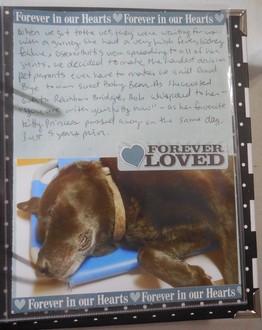 Forever in our Hearts Forever in our Hearts
When we got to the vet, they were waiting for us
with a gurney. She had a very high fever, kidney
failure,
joints, we decided to make the hardest decision
pet parents ever have to make, we said Good
Bye to our sweet Baby Bear. As she crossed
Rainbow Bridge, Bob whispered to her
"you are with now" - as her favorite
kitty, Princess passed away on the same day,
Just 5 years prior.
FOREVER
LOVED
Forever in our Hearts Forever in our Hearts